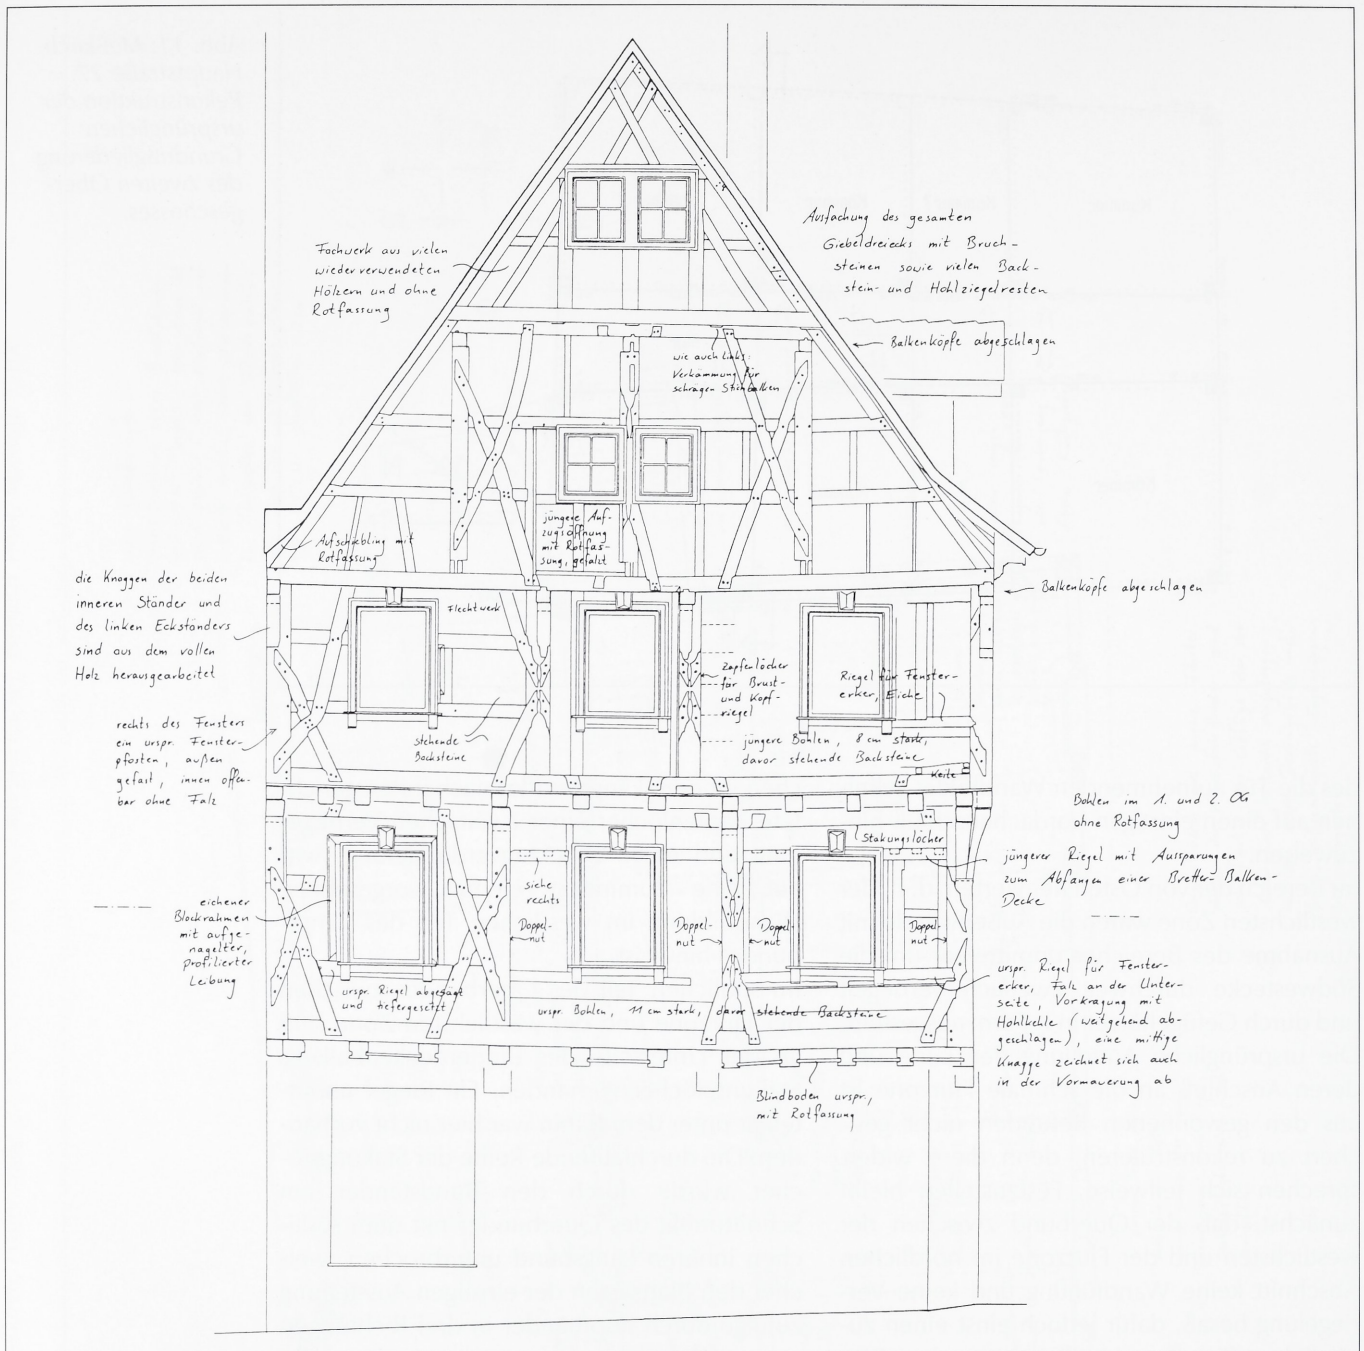 Ausfachung des gesamten
Giebeldreiecks mit Bruch-
steinen sowie vielen Back-
stein- und Hohlziegelresten
Fachwerk aus vielen
wiederverwendeten
Hölzern und ohne
Rotfassung
Balkenköpfe abgeschlagen
wie auch links:
Verkämmung für
schrägen Stichbalken
jüngere Auf-
zugsöffnung
mit Rotfas-
sung, gefalzt
Aufschiebling mit
Rotfassung
die Knaggen der beiden
inneren Ständer und
des linken Eckständers
sind aus dem vollen
Holz herausgearbeitet
Balkenköpfe abgeschlagen
Flechtwerk
Zapfenlöcher
für Brust-
und Kopf-
riegel
Riegel für Fenster-
erker, Eiche
rechts des Fensters
ein urspr. Fenster-
pfosten, außen
gefast, innen offen-
bar ohne Falz
stehende
Backsteine
jüngere Bohlen, 8 cm stark,
davor stehende Backsteine
Keile
Bohlen im 1. und 2. OG
ohne Rotfassung
Stakungslöcher
jüngerer Riegel mit Aussparungen
zum Abfangen einer Bretter-Balken-
Decke
siehe
rechts
eichener
Blockrahmen
mit aufge-
nagelter,
profilierter
Leibung
Doppel-
nut
Doppel-
nut
Doppel-
nut
Doppel-
nut
urspr. Riegel abgesägt
und tiefergesetzt
urspr. Bohlen, 11 cm stark, davor stehende Backsteine
urspr. Riegel für Fenster-
erker, Falz an der Unter-
seite, Vorkragung mit
Hohlkehle (weitgehend ab-
geschlagen), eine mittige
Knagge zeichnet sich auch
in der Vormauerung ab
Blindboden urspr.,
mit Rotfassung